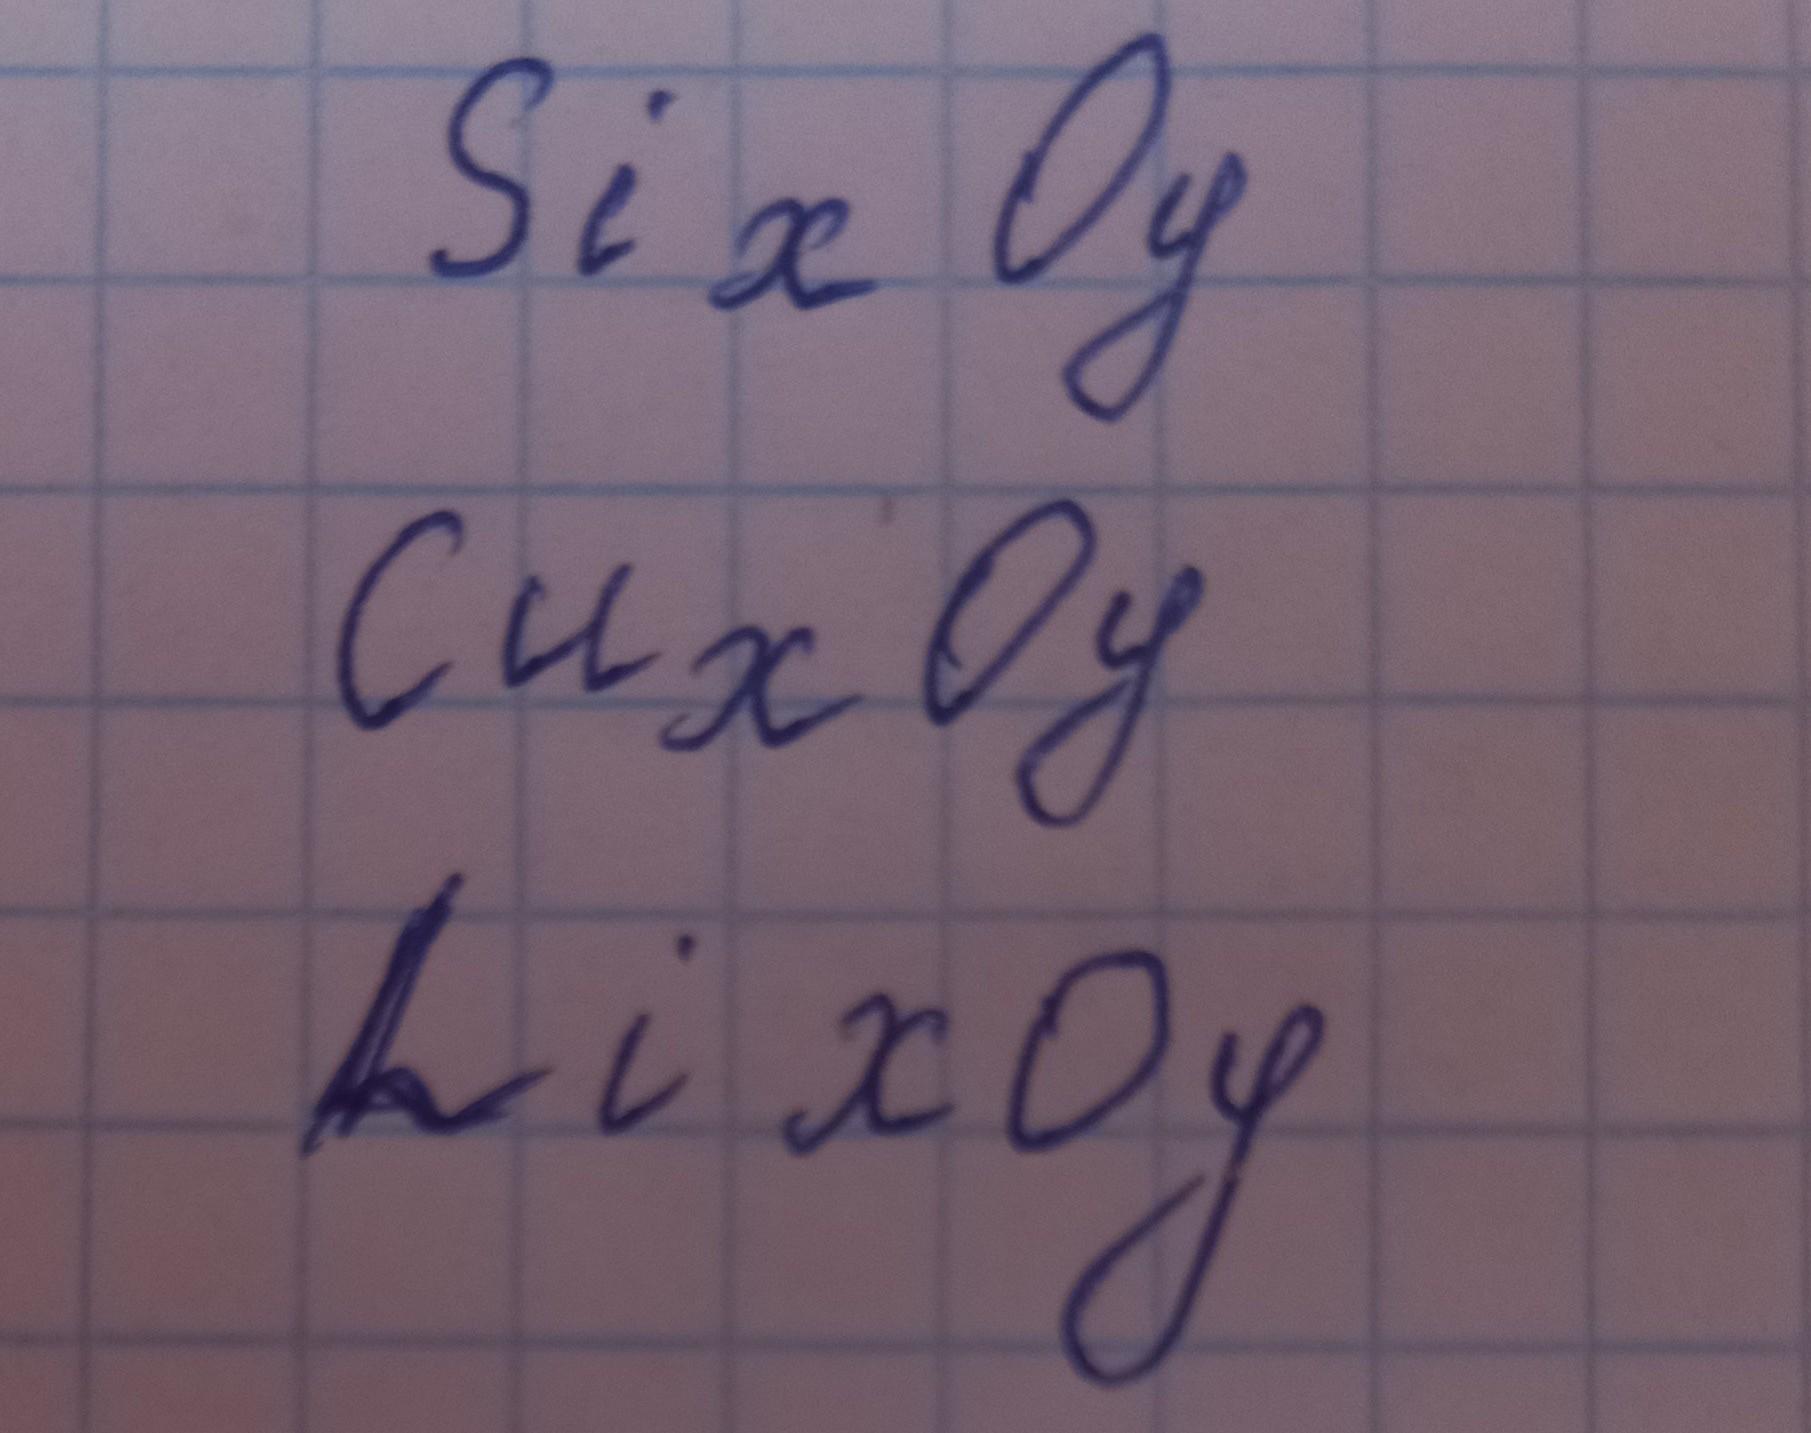 Si x Oy
Cu x Oy
Li x Oy